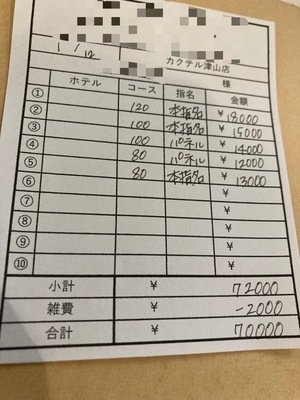 様
1/12
カクテル津山店
ホテル コース 指名 金額
①
② 120 本指名 ¥18000
③ 100 本指名 ¥15000
④ 100 パネル ¥14000
⑤ 80 パネル ¥12000
⑥ 80 本指名 ¥13000
⑦ ¥
⑧ ¥
⑨ ¥
⑩ ¥
小計 ¥ 72000
雑費 ¥ -2000
合計 ¥ 70000